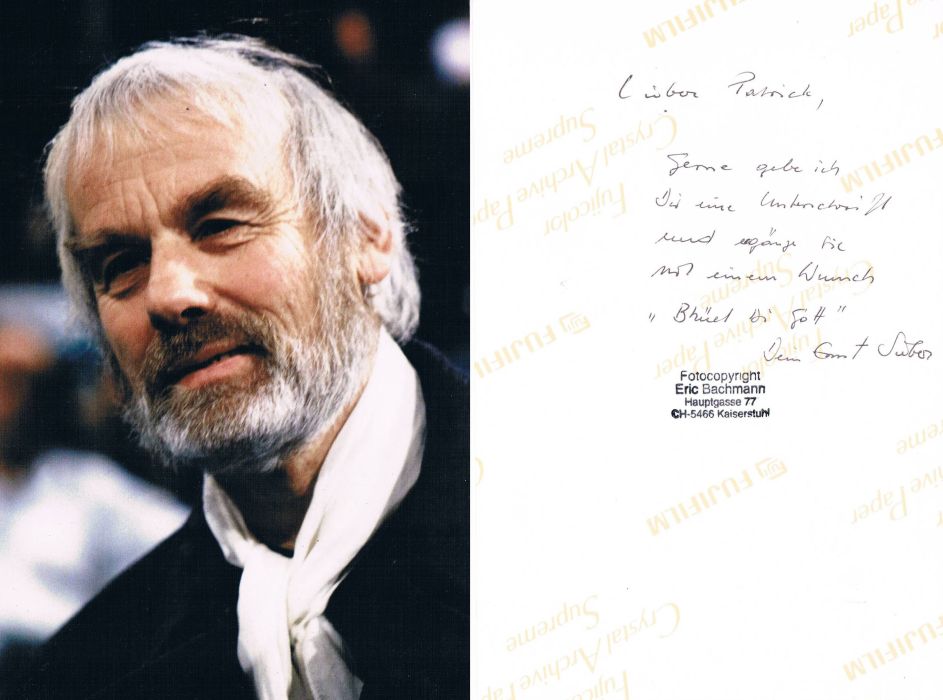 FUJIFILM
Paper
Lieber Patrick,
Fujicolor
Crystal Archive Paper
Supreme
Gerne gebe ich
FUJIFILM
Dir eine Unterschrift
und ergänze sie
mit einem Wunsch
Supreme
Crystal Archive Paper
"Bhüet Di Gott"
Fuji FUJIFILM
Dein Ernst Sieber
Fotocopyright
Eric Bachmann
Hauptgasse 77
CH-5466 Kaiserstuhl
Fuji FUJIFILM
Supreme
Crystal Archive Paper
Fujicolor
FUJIFILM